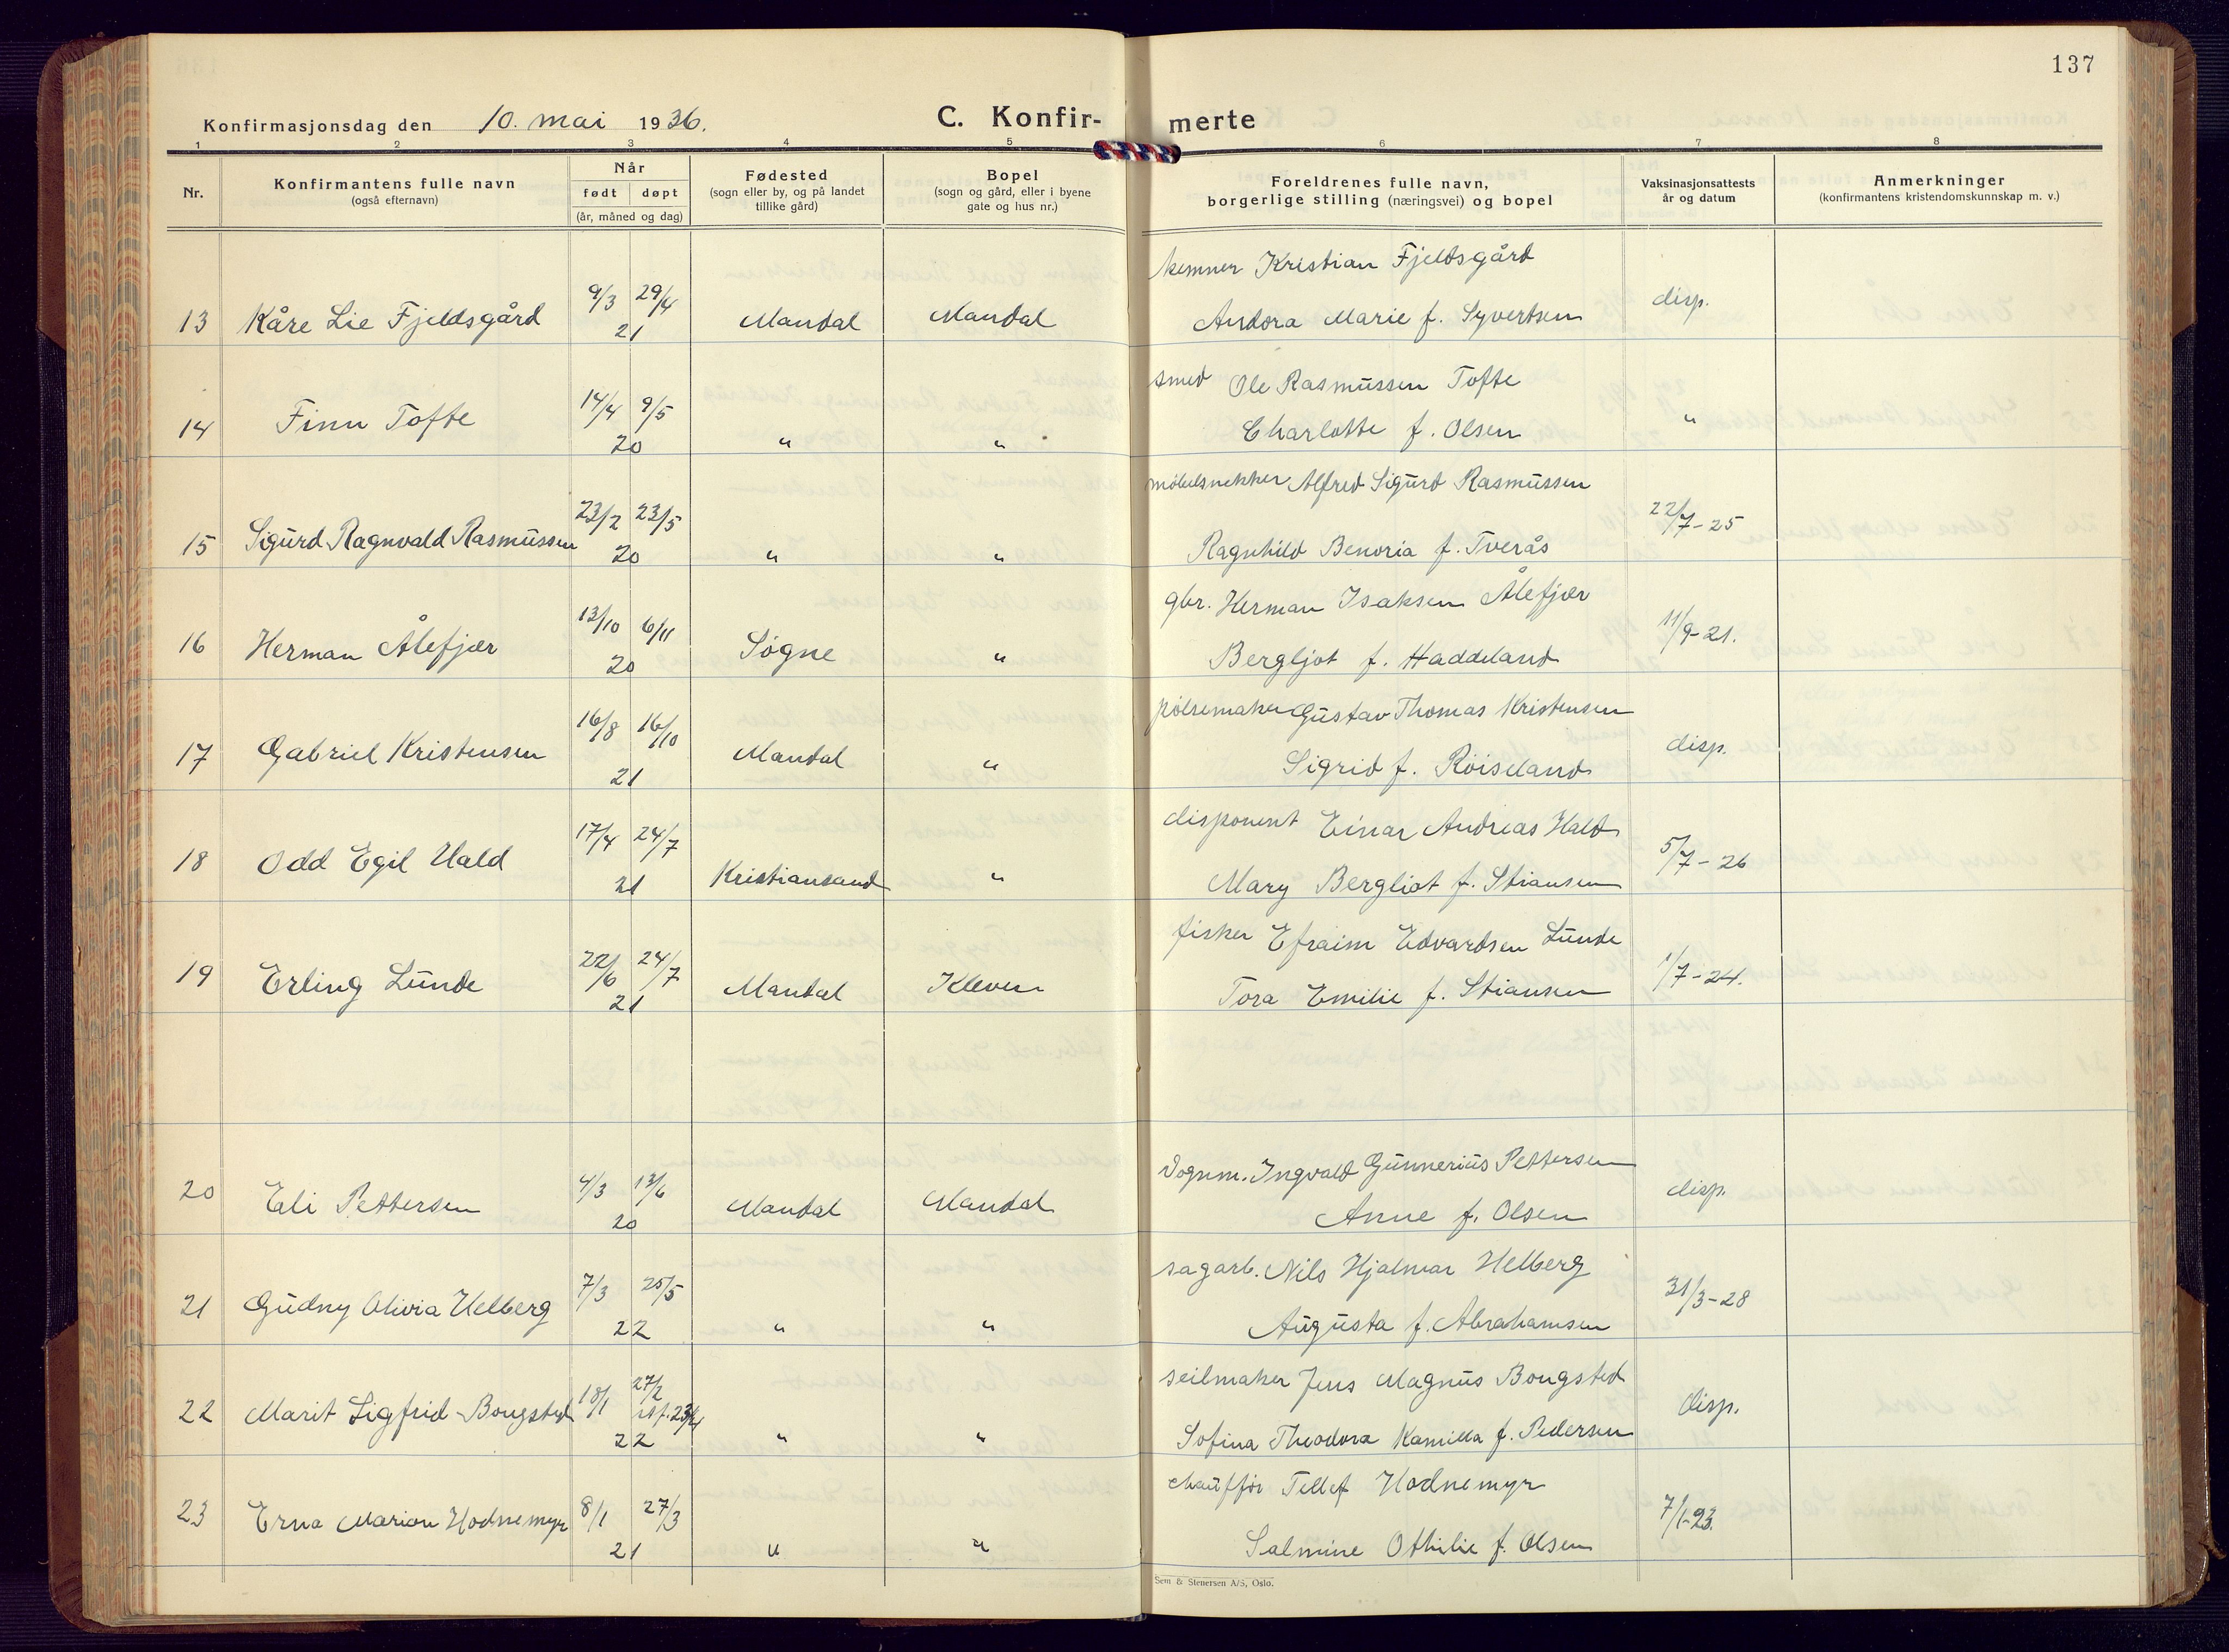 137
Konfirmasjonsdag den 10. mai 1936.
C. Konfir- merte
1 2 3 4 5 6 7 8
Nr.
Konfirmantens fulle navn
(også efternavn)
Når
født døpt
(år, måned og dag)
Fødested
(sogn eller by, og på landet
tillike gård)
Bopel
(sogn og gård, eller i byene
gate og hus nr.)
Foreldrenes fulle navn,
borgerlige stilling (næringsvei) og bopel
Vaksinasjonsattests
år og datum
Anmerkninger
(konfirmantens kristendomskunnskap m. v.)
kemner Kristian Fjeldsgård
13 Kåre Lie Fjeldsgård 9/3 29/4 21 Mandal Mandal Andora Marie f. Syvertsen disp.
smed Ole Rasmussen Tofte
14 Finn Tofte 14/4 9/5 20 " " Charlotte f. Olsen "
møbelsnekker Alfred Sigurd Rasmussen
15 Sigurd Ragnvald Rasmussen 23/2 23/5 20 " " Ragnhild Benoria f. Tverås 22/7-25
gbr. Herman Isaksen Ålefjær
16 Herman Ålefjær 13/10 6/11 20 Søgne " Bergljot f. Haddeland 11/9-21.
pølsemaker Gustav Thomas Kristensen
17 Gabriel Kristensen 16/8 16/10 21 Mandal " Sigrid f. Røiseland disp.
disponent Einar Andreas Hald
18 Odd Egil Hald 17/4 24/7 21 Kristiansand " Mary Bergliot f. Stiansen 5/7-26
fisker Efraim Edvardsen Lunde
19 Erling Lunde 22/6 24/7 21 Mandal Kleven Tora Emilie f. Stiansen 1/7-24.
vognm. Ingvald Gunnerius Pettersen
20 Eli Pettersen 4/3 13/6 20 Mandal Mandal Anne f. Olsen disp.
sagarb. Nils Hjalmar Helberg
21 Gudny Olivia Helberg 7/3 25/5 22 " " Augusta f. Abrahamsen 31/3-28
seilmaker Jens Magnus Bongsted
22 Marit Sigfrid Bongsted 18/1 27/2 22 " " Sofina Theodora Kamilla f. Pedersen disp.
chauffør Tellef Hodnemyr
23 Erna Marion Hodnemyr 8/1 27/3 21 " " Salmine Othilie f. Olsen 7/1-23.
Sem & Stenersen A/S, Oslo.